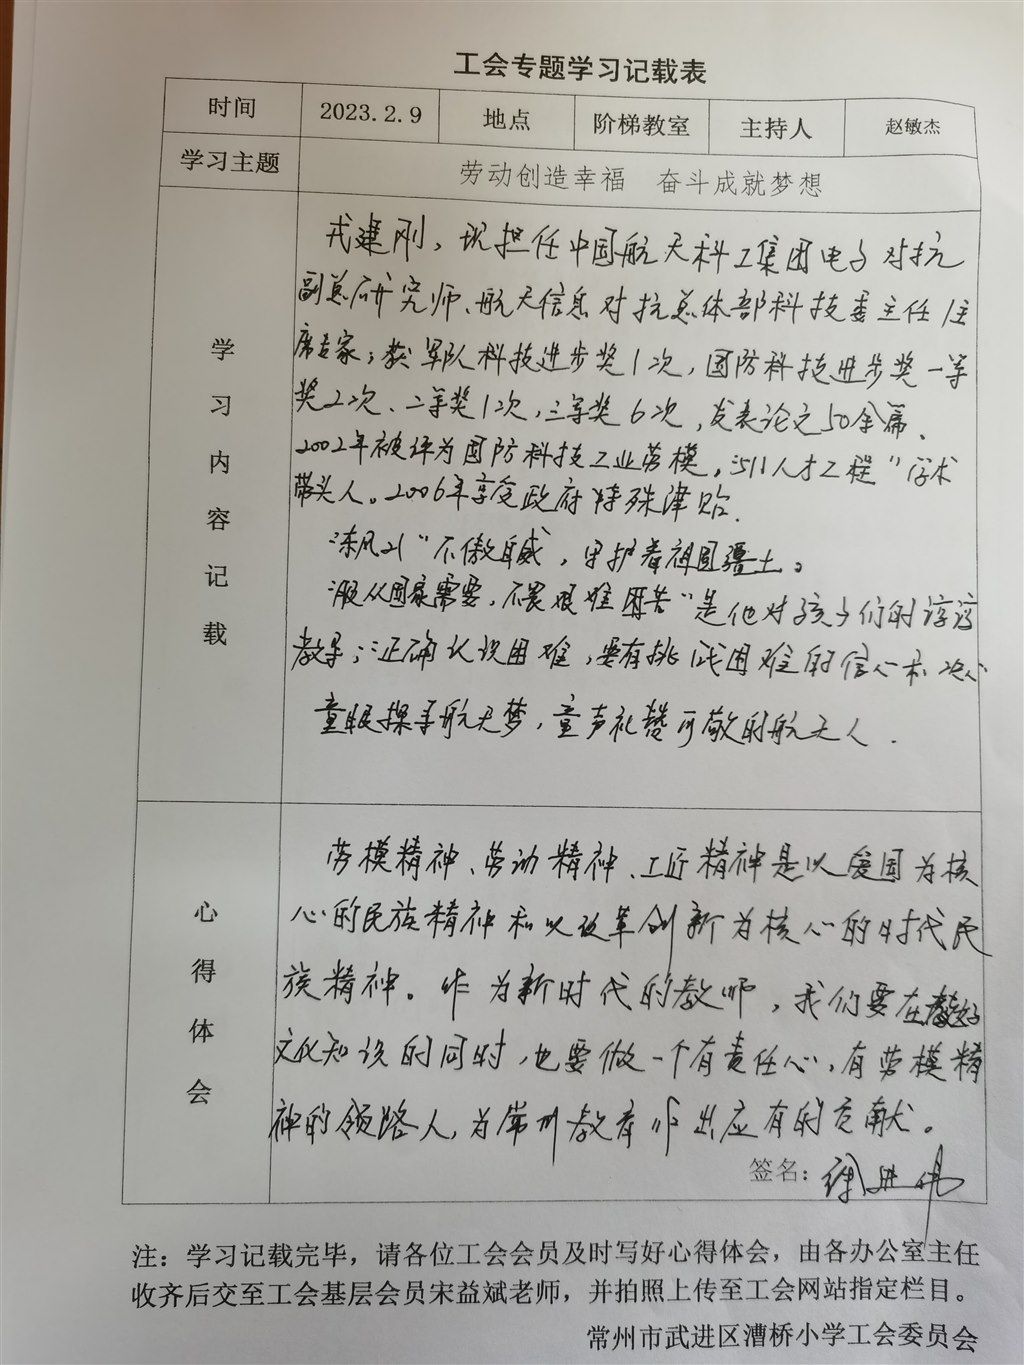 工会专题学习记载表
时间 2023.2.9 地点 阶梯教室 主持人 赵敏杰
学习主题 劳动创造幸福 奋斗成就梦想
学习内容记载
戎建刚，现担任中国航天科工集团电子对抗
副总研究师、航天信息对抗总体部科技委主任/首
席专家；获军队科技进步奖1次，国防科技进步奖一等
奖2次、二等奖1次，三等奖6次，发表论文50余篇、
2002年被评为国防科技工业劳模，“511人才工程”学术
带头人。2006年享受政府特殊津贴.
“东风21”不傲自威，守护着祖国疆土。
“服从国家需要，不畏艰难困苦”是他对孩子们的谆谆
教导；正确认识困难，要有挑战困难的信心和决心
童眼探寻航天梦，童声礼赞可敬的航天人.
心得体会
劳模精神、劳动精神、工匠精神是以爱国为核
心的民族精神和以改革创新为核心的时代民
族精神。作为新时代的教师，我们要在教好
文化知识的同时，也要做一个有责任心，有劳模精
神的领路人，为常州教育作出应有的贡献。
签名：
注：学习记载完毕，请各位工会会员及时写好心得体会，由各办公室主任
收齐后交至工会基层会员宋益斌老师，并拍照上传至工会网站指定栏目。
常州市武进区漕桥小学工会委员会